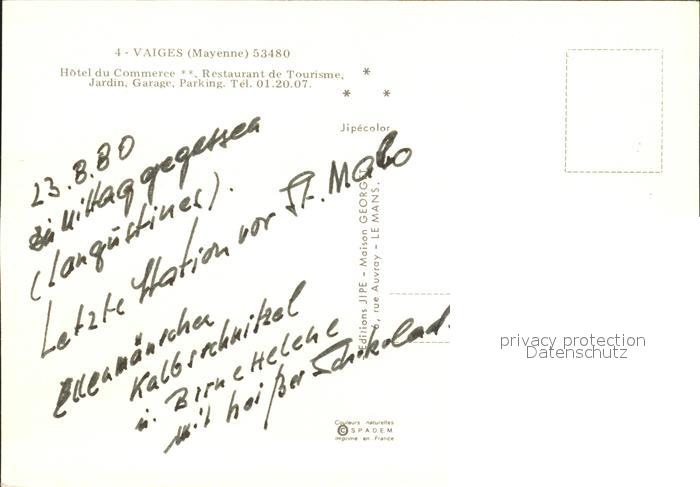 4 - VAIGES (Mayenne) 53480
Hôtel du Commerce **, Restaurant de Tourisme,
Jardin, Garage, Parking. Tél. 01.20.07.
Jipécolor
23.8.80
zu Mittag gegessen
(Langustines).
Letzte Station vor St. Malo
Kalbsschnitzel
u. Birne Helene
mit heißer Schokolad.
Editions JIPE - Maison GEORGET
6, rue Auvray - LE MANS.
privacy protection
Datenschutz
Couleurs naturelles
© S.P.A.D.E.M.
Imprimé en France